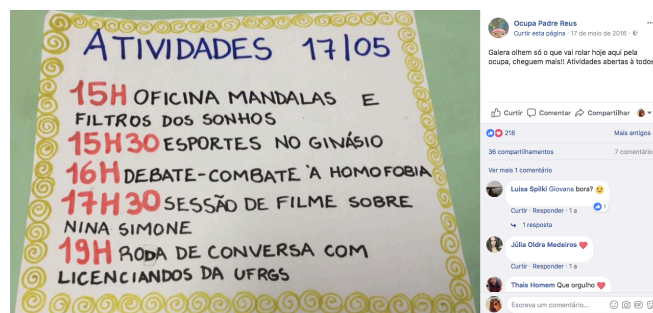 ATIVIDADES 17/05
15H OFICINA MANDALAS E
FILTROS DOS SONHOS
15H30 ESPORTES NO GINÁSIO
16H DEBATE-COMBATE À HOMOFOBIA
17H30 SESSÃO DE FILME SOBRE
NINA SIMONE
19H RODA DE CONVERSA COM
LICENCIANDOS DA UFRGS
Ocupa Padre Reus
Curtir esta página · 17 de maio de 2016 ·
Galera olhem só o que vai rolar hoje aqui pela
ocupa, cheguem mais!! Atividades abertas à todos
Curtir Comentar Compartilhar
218 Mais antigos
36 compartilhamentos 7 comentário
Ver mais 1 comentário
Luisa Spilki Giovana bora?
1
Curtir · Responder · 1 a
1 resposta
Júlia Oldra Medeiros
Curtir · Responder · 1 a
Thais Homem Que orgulho
Escreva um comentário...
GIF